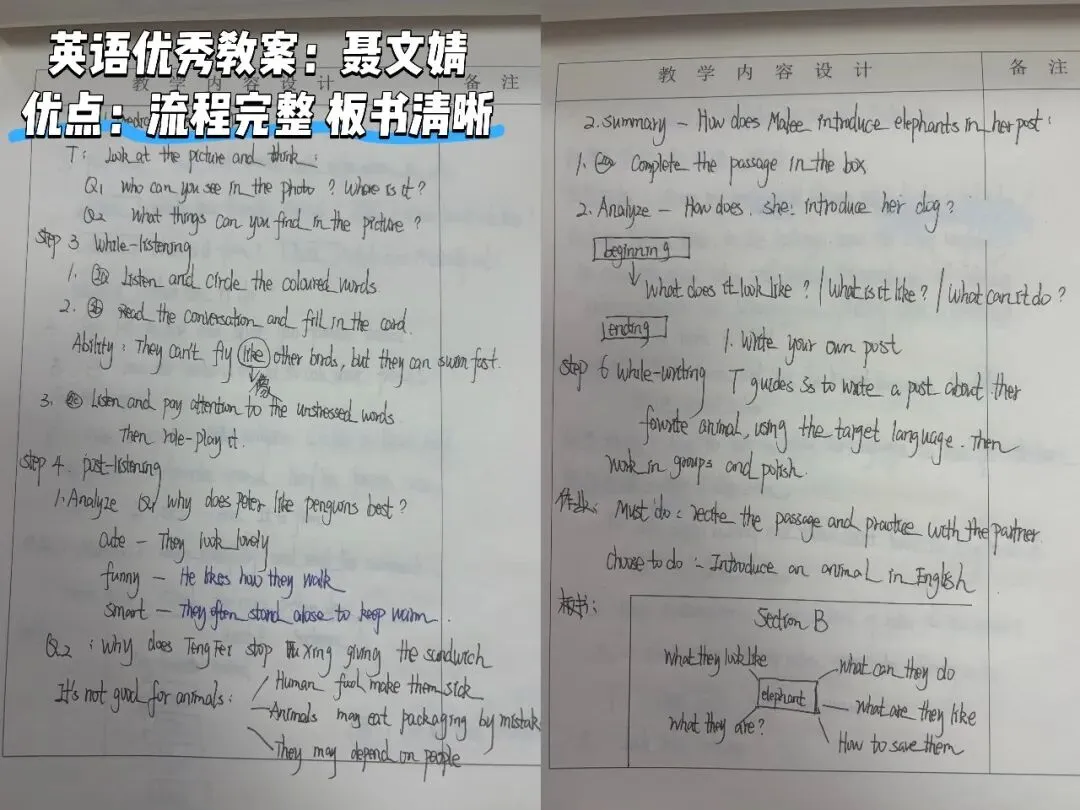 英语优秀教案：聂文婧
优点：流程完整 板书清晰
教学内容设计
备注
T: Look at the picture and think:
Q1 who can you see in the photo? Where is it?
Q2 what things can you find in the picture?
Step 3 While-listening
1. 2a Listen and circle the coloured words
2. 2b Read the conversation and fill in the card.
Ability: They can't fly like other birds, but they can swim fast.
像
3. 2c Listen and pay attention to the unstressed words.
Then role-play it.
Step 4. post-listening
1. Analyze Q1 why does Peter like penguins best?
cute – They look lovely
funny – He likes how they walk
smart – They often stand close to keep warm.
Q2: why does TengFei stop Yuxing giving the sandwich
It's not good for animals:
Human food make them sick
Animals may eat packaging by mistak
They may depend on people
教学内容设计
备注
2. Summary – How does Malee introduce elephants in her post:
1. Complete the passage in the box
2. Analyze – How does she introduce her dog?
beginning
What does it look like? / What is it like? / What can it do?
ending
1. Write your own post
Step 6 While-writing T guides Ss to write a post about ther
favorite animal, using the target language. Then
work in groups and polish.
作业: Must do: recite the passage and practice with the partner.
choose to do: Introduce an animal in English
板书:
Section B
what they look like
what can they do
elephant
what are they like
what they are?
How to save them